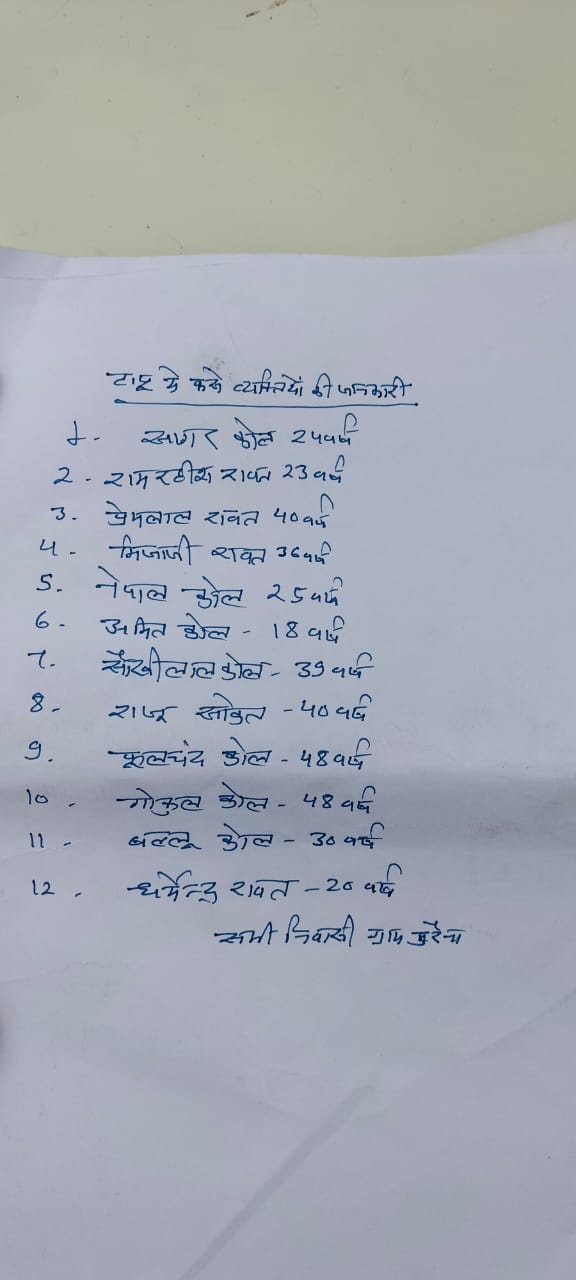 टापू मे फसे व्यक्तियों की जानकारी
1- सागर कोल 24 वर्ष
2- रावत 23 वर्ष
3- प्रेमलाल रावत 40 वर्ष
4- मिजाजी रावत 36 वर्ष
5- नेपाल कोल 25 वर्ष
6- अमित कोल - 18 वर्ष
7. कोल - 39 वर्ष
8- राजू साकेत - 40 वर्ष
9. फूलचंद कोल - 48 वर्ष
10. गोकुल कोल - 48 वर्ष
11 - बल्लू कोल - 30 वर्ष
12. धर्मेन्द्र रावत - 20 वर्ष
सभी निवासी ग्राम